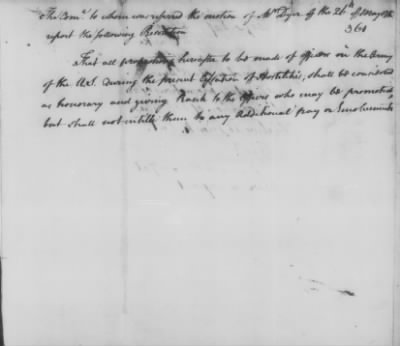 The Com.ee to whom was referred the motion of Mr Dyer of the 26th of May
report the following Resolution
364
That all promotions hereafter to be made of officers in the Army
of the U.S. during the present Cessation of Hostilities, shall be considered
as honorary and giving Rank to the officers who may be promoted,
but shall not intitle them to any additional pay or Emoluments